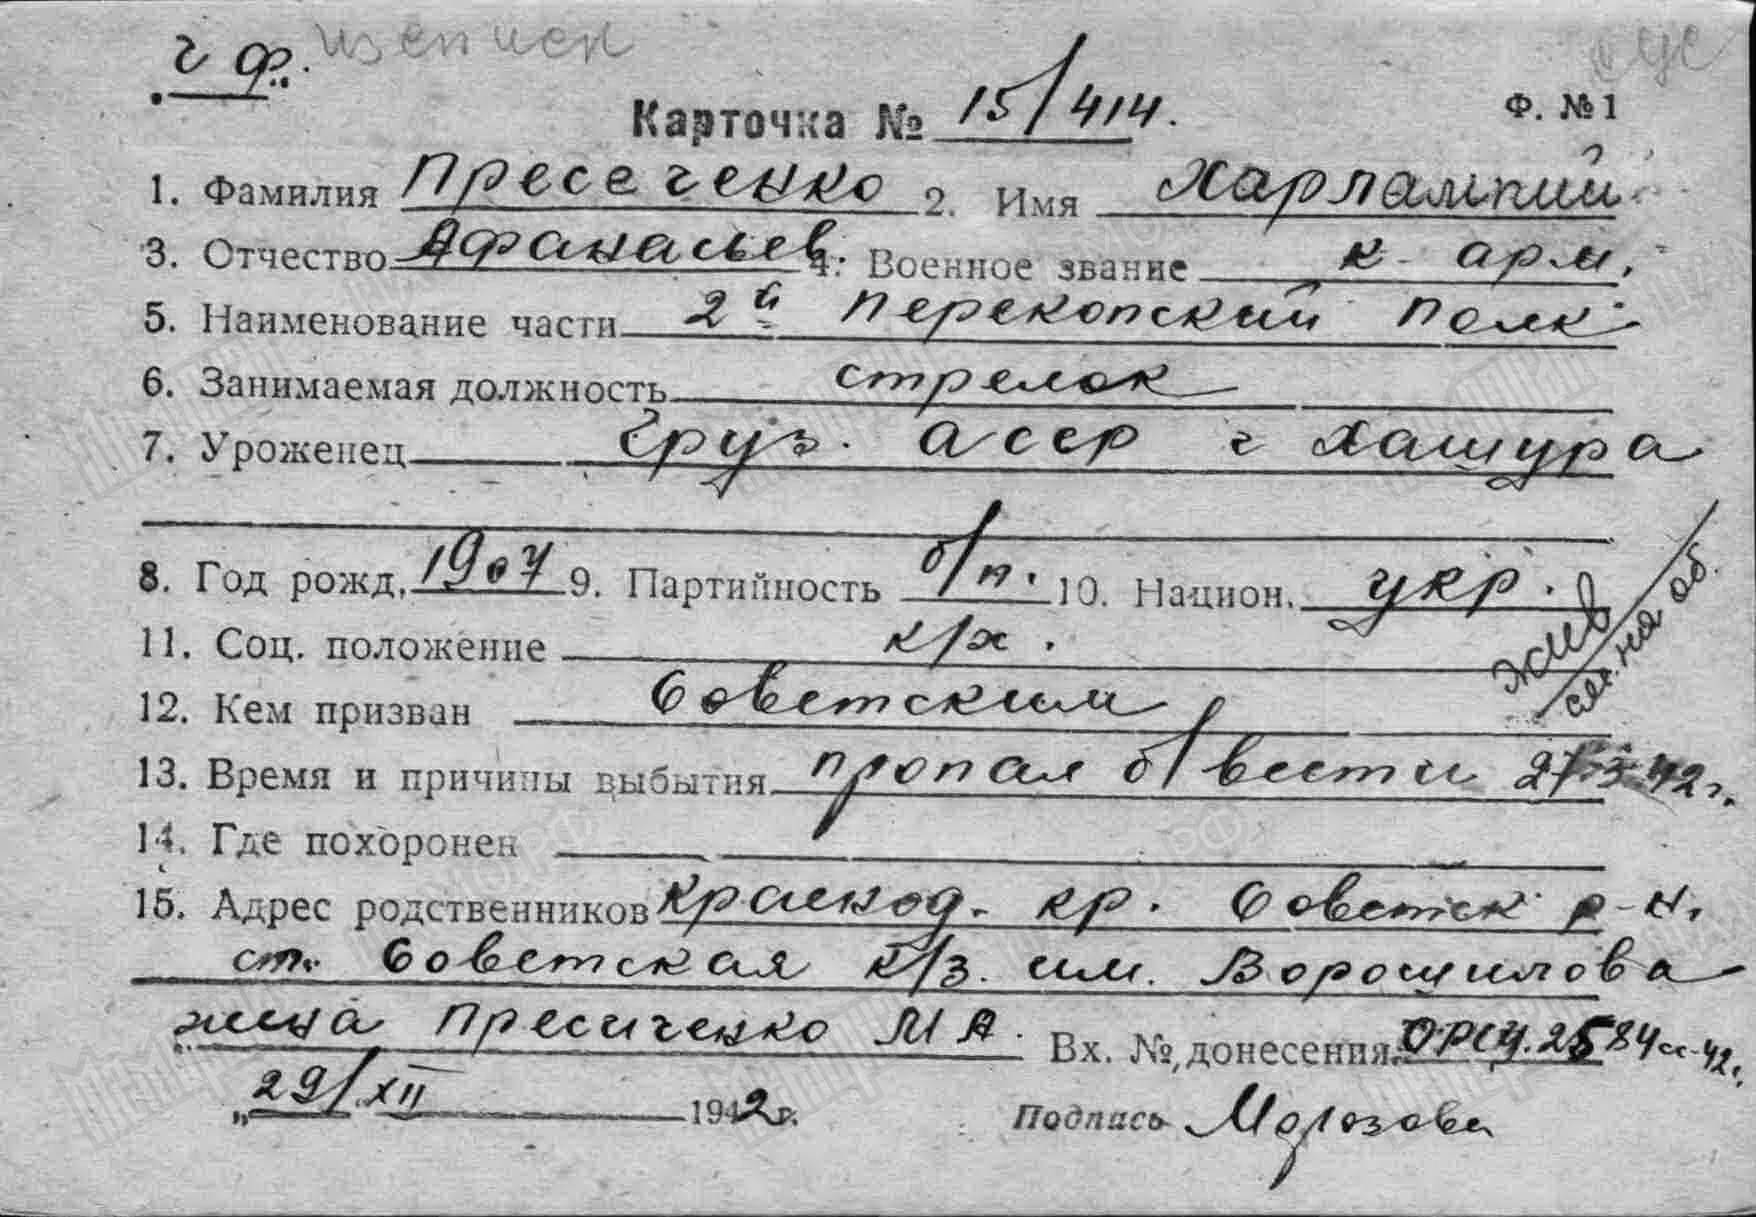 ч ф.
Карточка № 15/414. Ф. №1
1. Фамилия Пресеченко 2. Имя Харлампий
3. Отчество Афанасьев. 4. Военное звание к-арм.
5. Наименование части 2й Перекопский полк
6. Занимаемая должность стрелок
7. Уроженец Груз. АССР г Хашура
8. Год рожд. 1907 9. Партийность б/п. 10. Национ. укр.
жив
см. на об.
11. Соц. положение к/х.
12. Кем призван Советским
13. Время и причины выбытия пропал б/вести 27.5.42г.
14. Где похоронен
15. Адрес родственников Краснод. кр. Советск р-н.
ст. Советская к/з. им. Ворошилова
жена Пресиченко М А. Вх. № донесения 2584сс-42г.
„29/XII 1942г.
Подпись Морозова